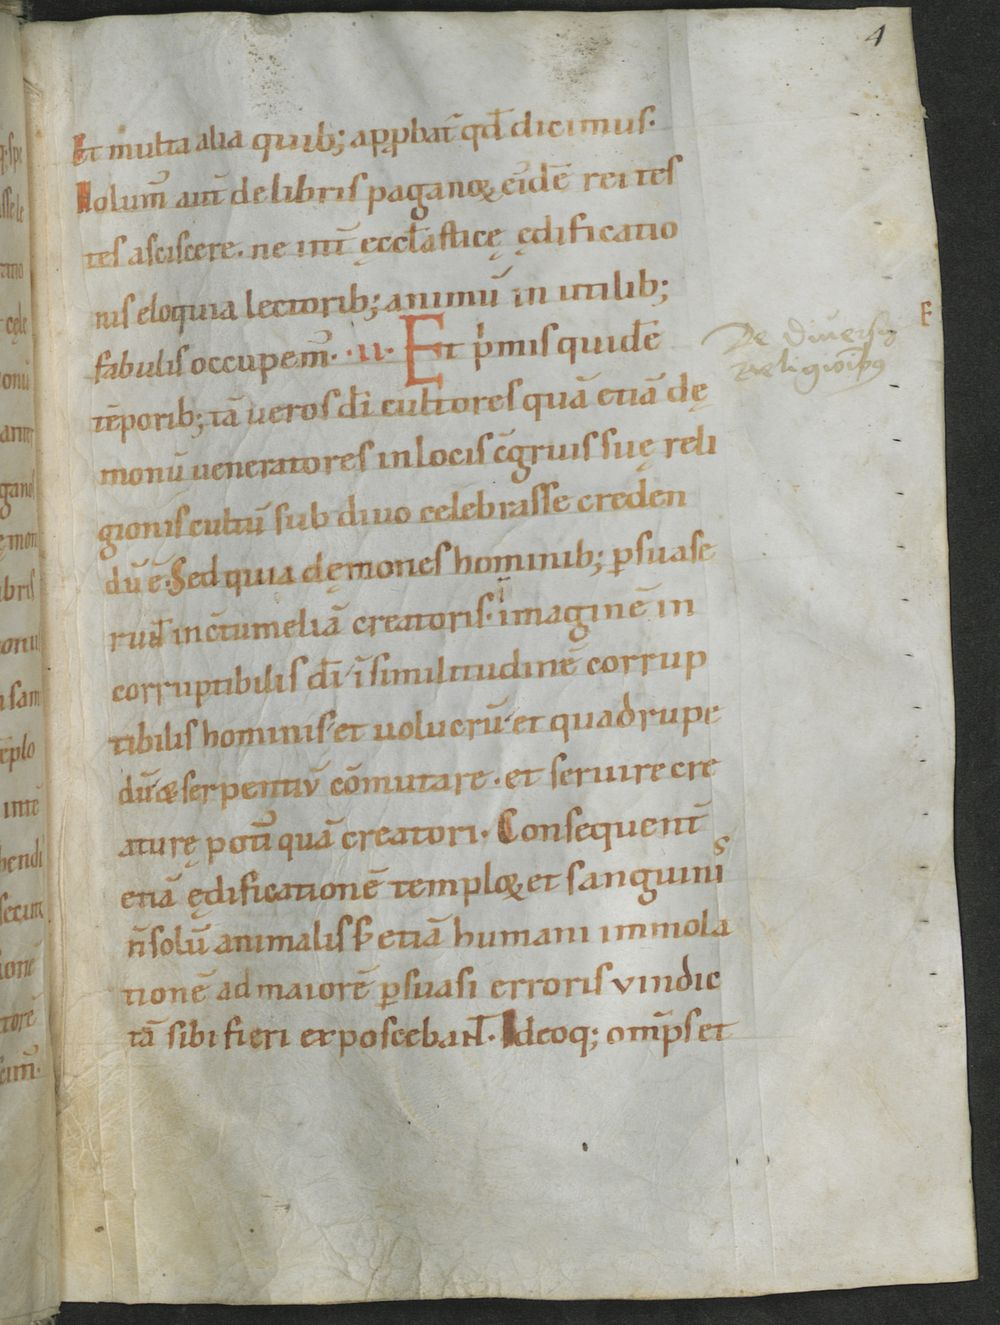 4
Et multa alia quib; ap̱pbat̄ qđ dicimus.
Nolum̄ aut̄ de libris paganoꝝ eid̄e rei tes
tes asciscere. ne int̄ ęccl̄asticę ędificatio
nis eloquia lectorib; animū in utilib;
fabulis occupem̄. .II. Et pͥmis quidē
De diuersis
religioībus
E
tēporib; tā ueros dī cultores quā etiā dę
monū ueneratores in locis c̄gruis suę reli
gionis cultū sub diuo celebrasse creden
dū ē. Sed quia dęmones hominib; ꝑsuase
rūt in c̄tumeliā creatoris. imaginē in
corruptibilis dī ī similitudinē corrup
tibilis hominis et uolucrū et quadrupe
dū & serpentiū cōmutare. et seruire cre
aturę potiꝰ quā creatori. Consequent̄
etiā ędificationē temploꝝ et sanguinis
n̄ solū animalis sꝫ etiā humani immola
tionē ad maiorē ꝑsuasi erroris vindic
tā sibi fieri exposcebant. Ideoq; om̄ps et